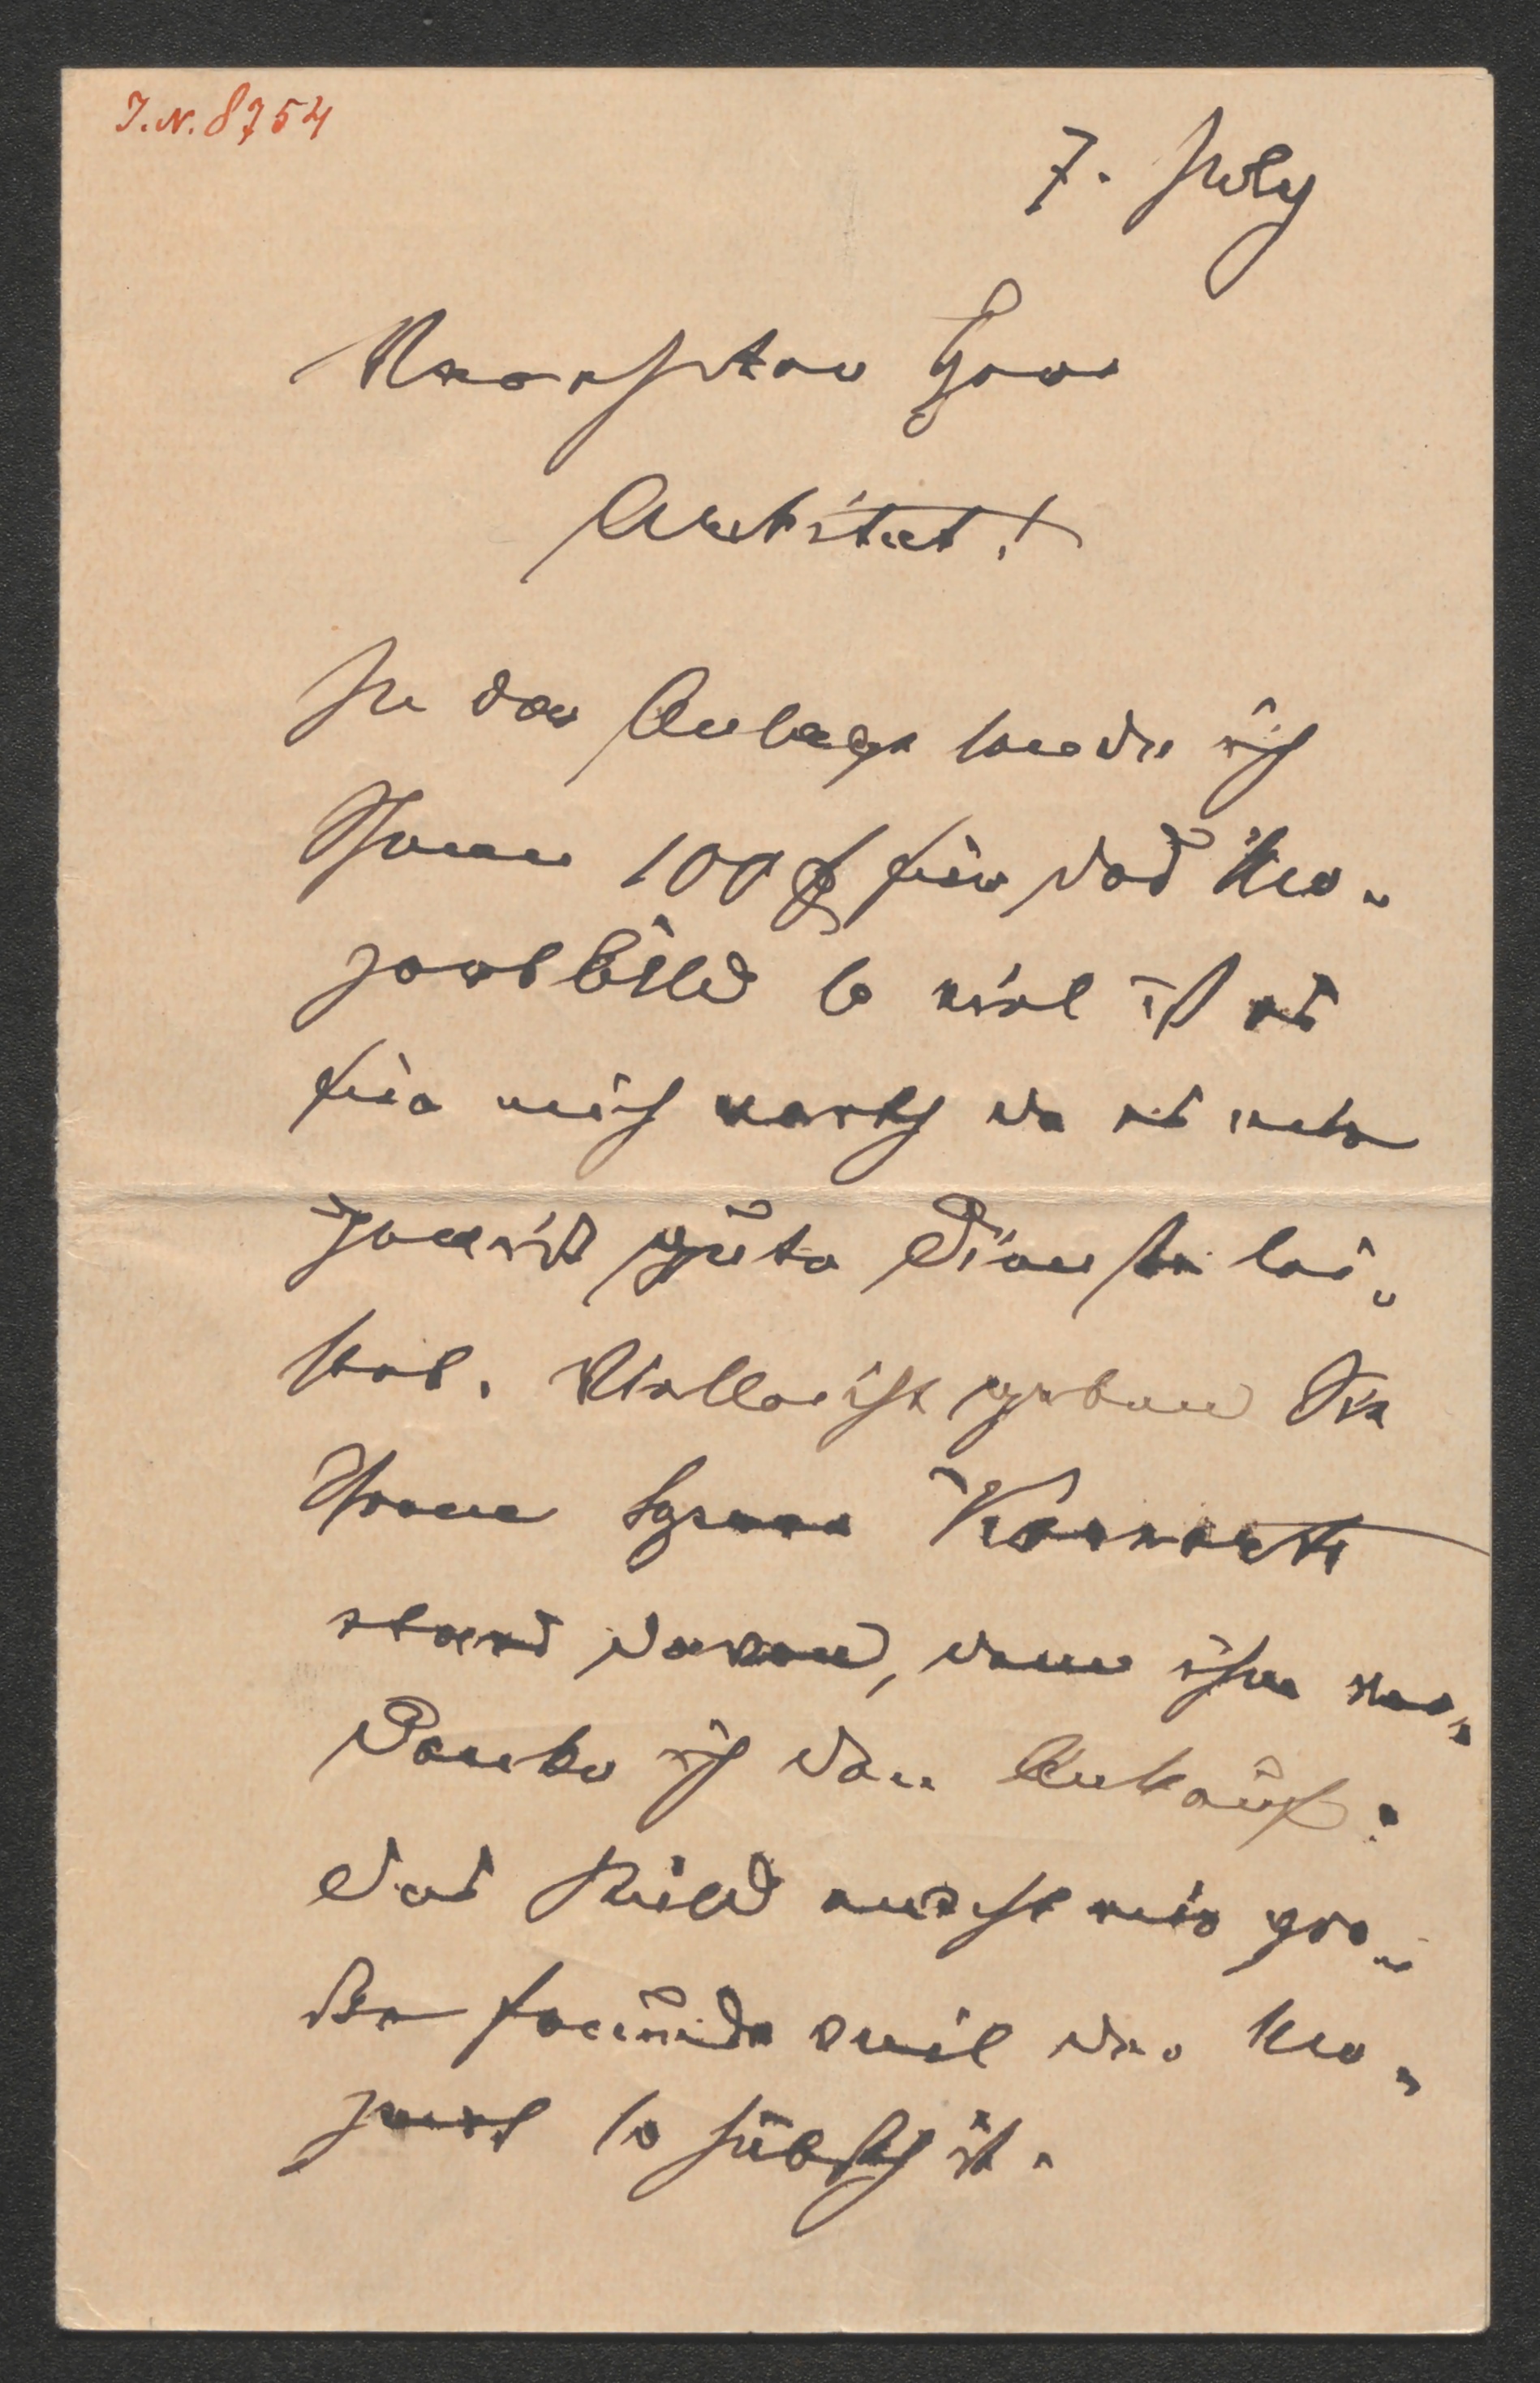 I.N. 8754
7. July
Verehrter Herr
Architect!
In der Anlage sende ich
Ihnen 100 f für das Un-
gerbild so viel ist es
für mich werth da es mir
gewiß gute Dienste lei-
stet. Vielleicht geben Sie
Ihrem Herrn
etwas davon, denn ihm ver-
danke ich den Ankauf.
Das Bild macht mir gro-
ße Freude weil der
so hübsch ist.